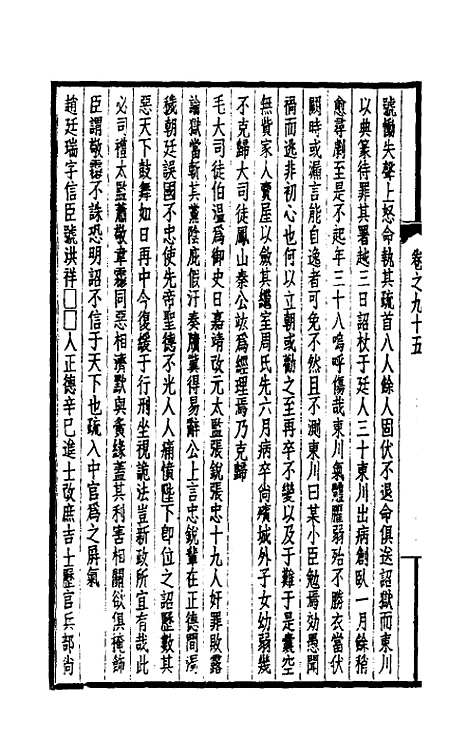 號慟失聲上怒命執其疏首八人餘人固伏不退命俱逮詔獄而東川
以典篆待罪其署越三日詔杖于廷人三十東川出病創臥一月餘稍
愈尋劇至是不起年三十八嗚呼傷哉東川氣體臞弱殆不勝衣當伏
闕時或漏言能自逸者可免不然且不測東川曰某小臣勉焉効愚聞
禍而逃非初心也何以立朝或勸之至再卒不變以及于難于是囊空
無貲家人賣屋以斂其繼室周氏先六月病卒尚殯城外子女幼弱幾
不克歸大司徒鳳山秦公竑為經理焉乃克歸
毛大司徒伯溫為御史日嘉靖改元太監張銳張忠十九人奸罪敗露
論獄當斬其黨陰庇假汗奏牘冀得易辭公上言忠銳輩在正德間濁
穢朝廷誤國不忠使先帝聖德不光人人痛憤陛下即位之詔歷數其
惡天下鼓舞如日再中今復緩于行刑坐視詭法豈新政所宜有哉此
必司禮太監蕭敬韋霦同惡相濟默與黃緣蓋其利害相關欲俱掩飾
臣謂敬霦不誅恐明詔不信于天下也疏入中官為之屏氣
趙廷瑞字信臣號洪祥□□人正德辛巳進士改庶吉士歷官兵部尚
卷之九十五